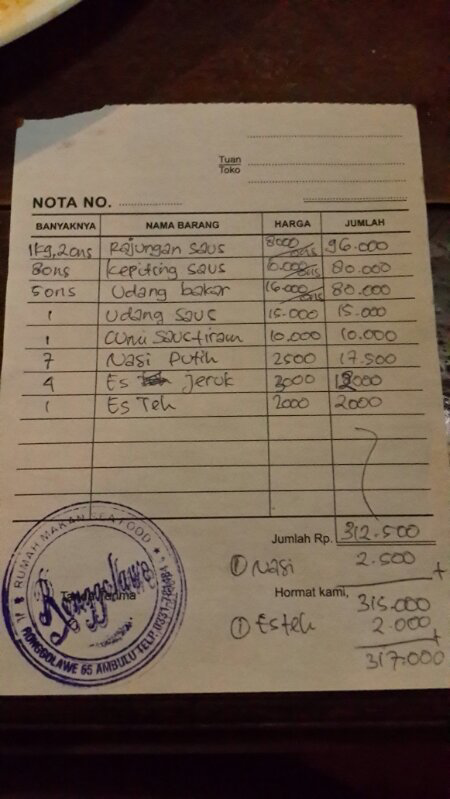 Tuan
Toko
NOTA NO.
BANYAKNYA NAMA BARANG HARGA JUMLAH
1kg,2ons Rajungan saus 8000/ons 96.000
8ons kepiting saus 10.000/ons 80.000
5ons Udang bakar 16.000/ons 80.000
1 Udang saus 15.000 15.000
1 Cumi saus tiram 10.000 10.000
7 Nasi Putih 2500 17.500
4 Es Jeruk 3000 12000
1 Es Teh 2000 2000
Jumlah Rp. 312.500
① Nasi 2.500 +
Tanda Terima Hormat kami, 315.000
① Es teh 2.000 +
317.000
RUMAH MAKAN SEAFOOD
Ronggolawe
RONGGOLAWE 65 AMBULU TELP.